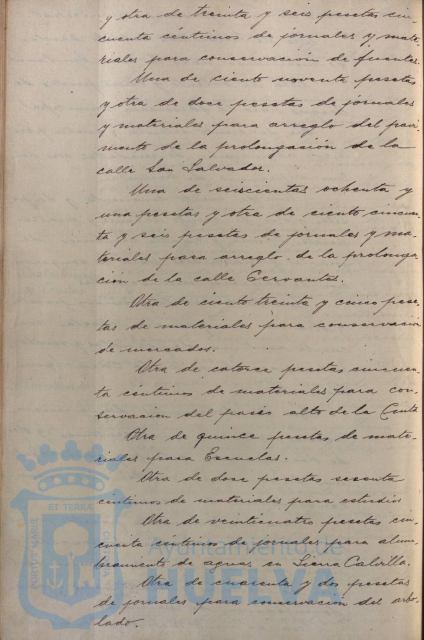 y otra de treinta y seis pesetas cin-
cuenta céntimos de jornales y mate-
riales para conservación de fuentes.
Una de ciento noventa pesetas
y otra de doce pesetas de jornales
y materiales para arreglo del pavi-
mento de la prolongación de la
calle San Salvador.
Una de seiscientas ochenta y
una pesetas y otra de ciento cincuen-
ta y seis pesetas de jornales y ma-
teriales para arreglo de la prolonga-
ción de la calle Cervantes.
Otra de ciento treinta y cinco pese-
tas de materiales para conservación
de mercados.
Otra de catorce pesetas cincuen-
ta céntimos de materiales para con-
servación del paseo alto de la Cinta
Otra de quince pesetas de mate-
riales para Escuelas.
Otra de doce pesetas sesenta
céntimos de materiales para estudios
Otra de veinticuatro pesetas cin-
cuenta céntimos de jornales para alum-
bramiento de aguas en Sierra Calvilla.
Otra de cuarenta y dos pesetas
de jornales para conservación del arbo-
lado.
PORTUS MARIS
ET TERRAE
CUSTODIA
Ayuntamiento de
HUELVA